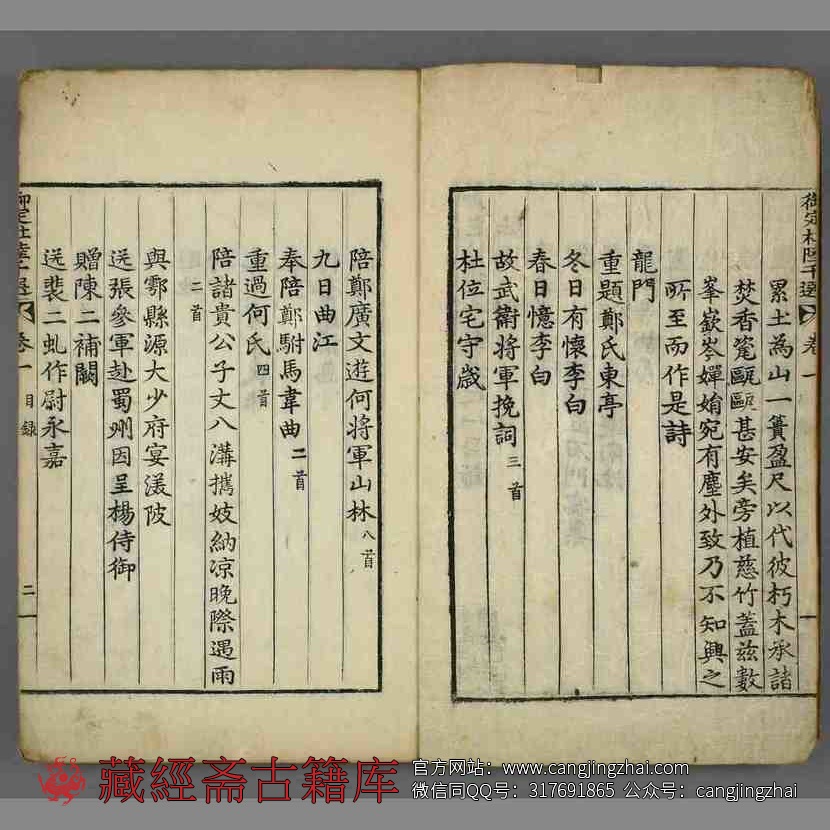 累土為山一簣盈尺以代彼朽木承諸
焚香瓷甌甌甚安矣旁植慈竹蓋茲數
峯嶔岑嬋娟宛有塵外致乃不知興之
所至而作是詩
龍門
重題鄭氏東亭
冬日有懷李白
春日憶李白
故武衞將軍挽詞三首
杜位宅守歲
陪鄭廣文遊何將軍山林八首
九日曲江
奉陪鄭駙馬韋曲二首
重過何氏四首
陪諸貴公子丈八溝攜妓納凉晚際遇雨
二首
與鄠縣源大少府宴渼陂
送張參軍赴蜀州因呈楊侍御
贈陳二補闕
送裴二虬作尉永嘉
卷一 目録 二
藏經斋古籍库
官方网站：www.cangjingzhai.com
微信同QQ号：317691865 公众号：cangjingzhai